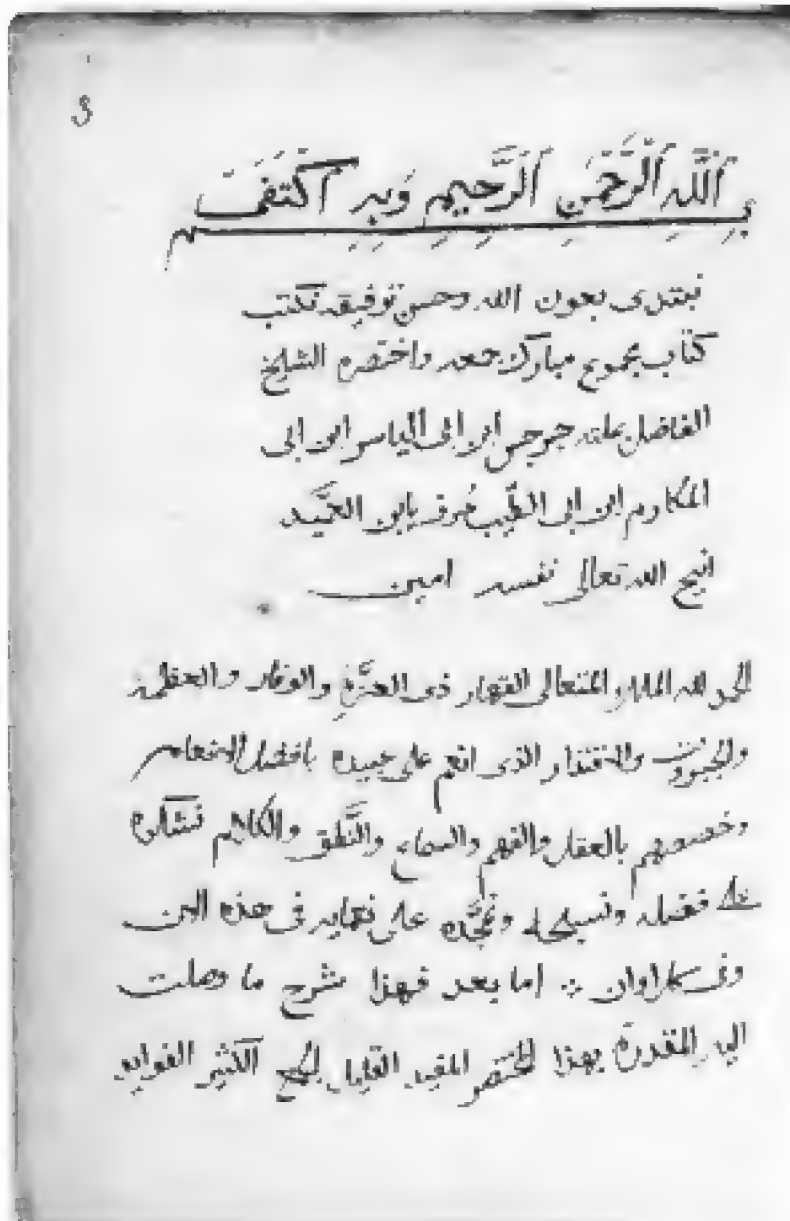 بسم اللَّهِ اَلرَّحْمَنِ اَلرَّحِيمِ وَبِهِ اَكْتَفَى
نبتدى بعون الله وحسن توفيقه نكتب
كتاب مجموع مبارك جمعه واختصره الشيخ
الفاضل جرجس ابن ابى الياسر ابن ابى
المكارم ابن ابى الطيِّب عُرف بابن العَميد
انيح الله تعالى نفسه امين
الحمد لله الملك المتعالى القهار ذى العزَّة والوقار والعظمة
والجبروت والاقتدار الذى انعم على عبيده بافضل الانعام
وخصصهم بالعقل والفهم والسماع والنُّطق والكلام نشكره
على فضله ونسبحه ونمجِّده على نعمايه فى هذه الان
وفى كل اوان ❖ اما بعد فهذا شرح ما وصلت
اليه المقدرة بهذا المختصر المفيد القليل الحجم الكثير الفوايد